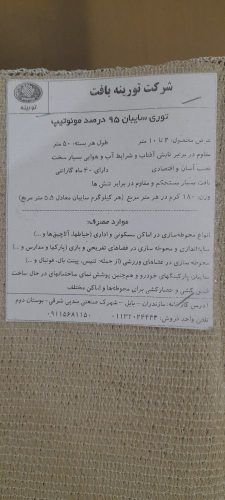 تورینه
شرکت تورینه بافت
توری سایبان ۹۵ درصد مونوتیپ
عرض محصول: ۲ تا ۱۰ متر
طول هر بسته: ۵۰ متر
مقاوم در برابر تابش آفتاب و شرایط آب و هوایی بسیار سخت
نصب آسان و اقتصادی
دارای ۳۰ ماه گارانتی
بافت بسیار مستحکم و مقاوم در برابر تنش ها
وزن: ۱۸۰ گرم در هر متر مربع (هر کیلوگرم سایبان معادل ۵.۵ متر مربع)
موارد مصرف:
انواع محوطه‌سازی در اماکن مسکونی و اداری (حیاطها، آلاچیق‌ها و ...)
سایه‌اندازی و محوطه سازی در فضاهای تفریحی و بازی (پارکها و مدارس و ...)
محوطه سازی در فضاهای ورزشی (از جمله: تنیس، پینت بال، فوتبال و ...)
سایبان پارکینگهای خودرو و همچنین پوشش نمای ساختمانهای در حال ساخت
کشی و حصارکشی برای محوطه‌ها و اماکن مختلف
آدرس کارخانه: مازندران - بابل - شهرک صنعتی بندپی شرقی - بوستان دوم
تلفن واحد فروش: ۰۱۱۳۲۰۲۴۴۴۳ - ۰۹۱۱۵۶۸۱۱۵۰